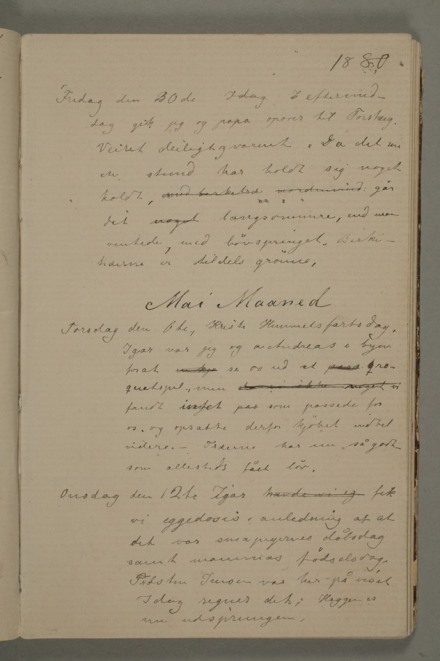 1880
Fredag den 30de Idag I eftermid-
dag gik jeg og papa opover til Torshaug.
Veiret deiligt varmt. Da det nu
en stund har holdt sig noget
koldt, går
det noget langsommere, end man
ventede, med løvspringet. Birke-
træerne er deldels grønne,
Mai Maaned
Torsdag den 6te, Kristi Himmelsfartsdag.
Igår var jeg og Andreas i byen
forat se os ud et
men
fandt intet pas som passede for
os. og opsatte derfor kjøbet indtil
videre. - Træerne har nu så godt
som allesteds fået løv.
Onsdag den 12te Igår havde vi eg fik
vi eggedosis i anledning af at
det var småpigernes dåbsdag
samt mammas fødselsdag.
Jensen var her på
Idag regner det; Heggen er
nu udsprungen.